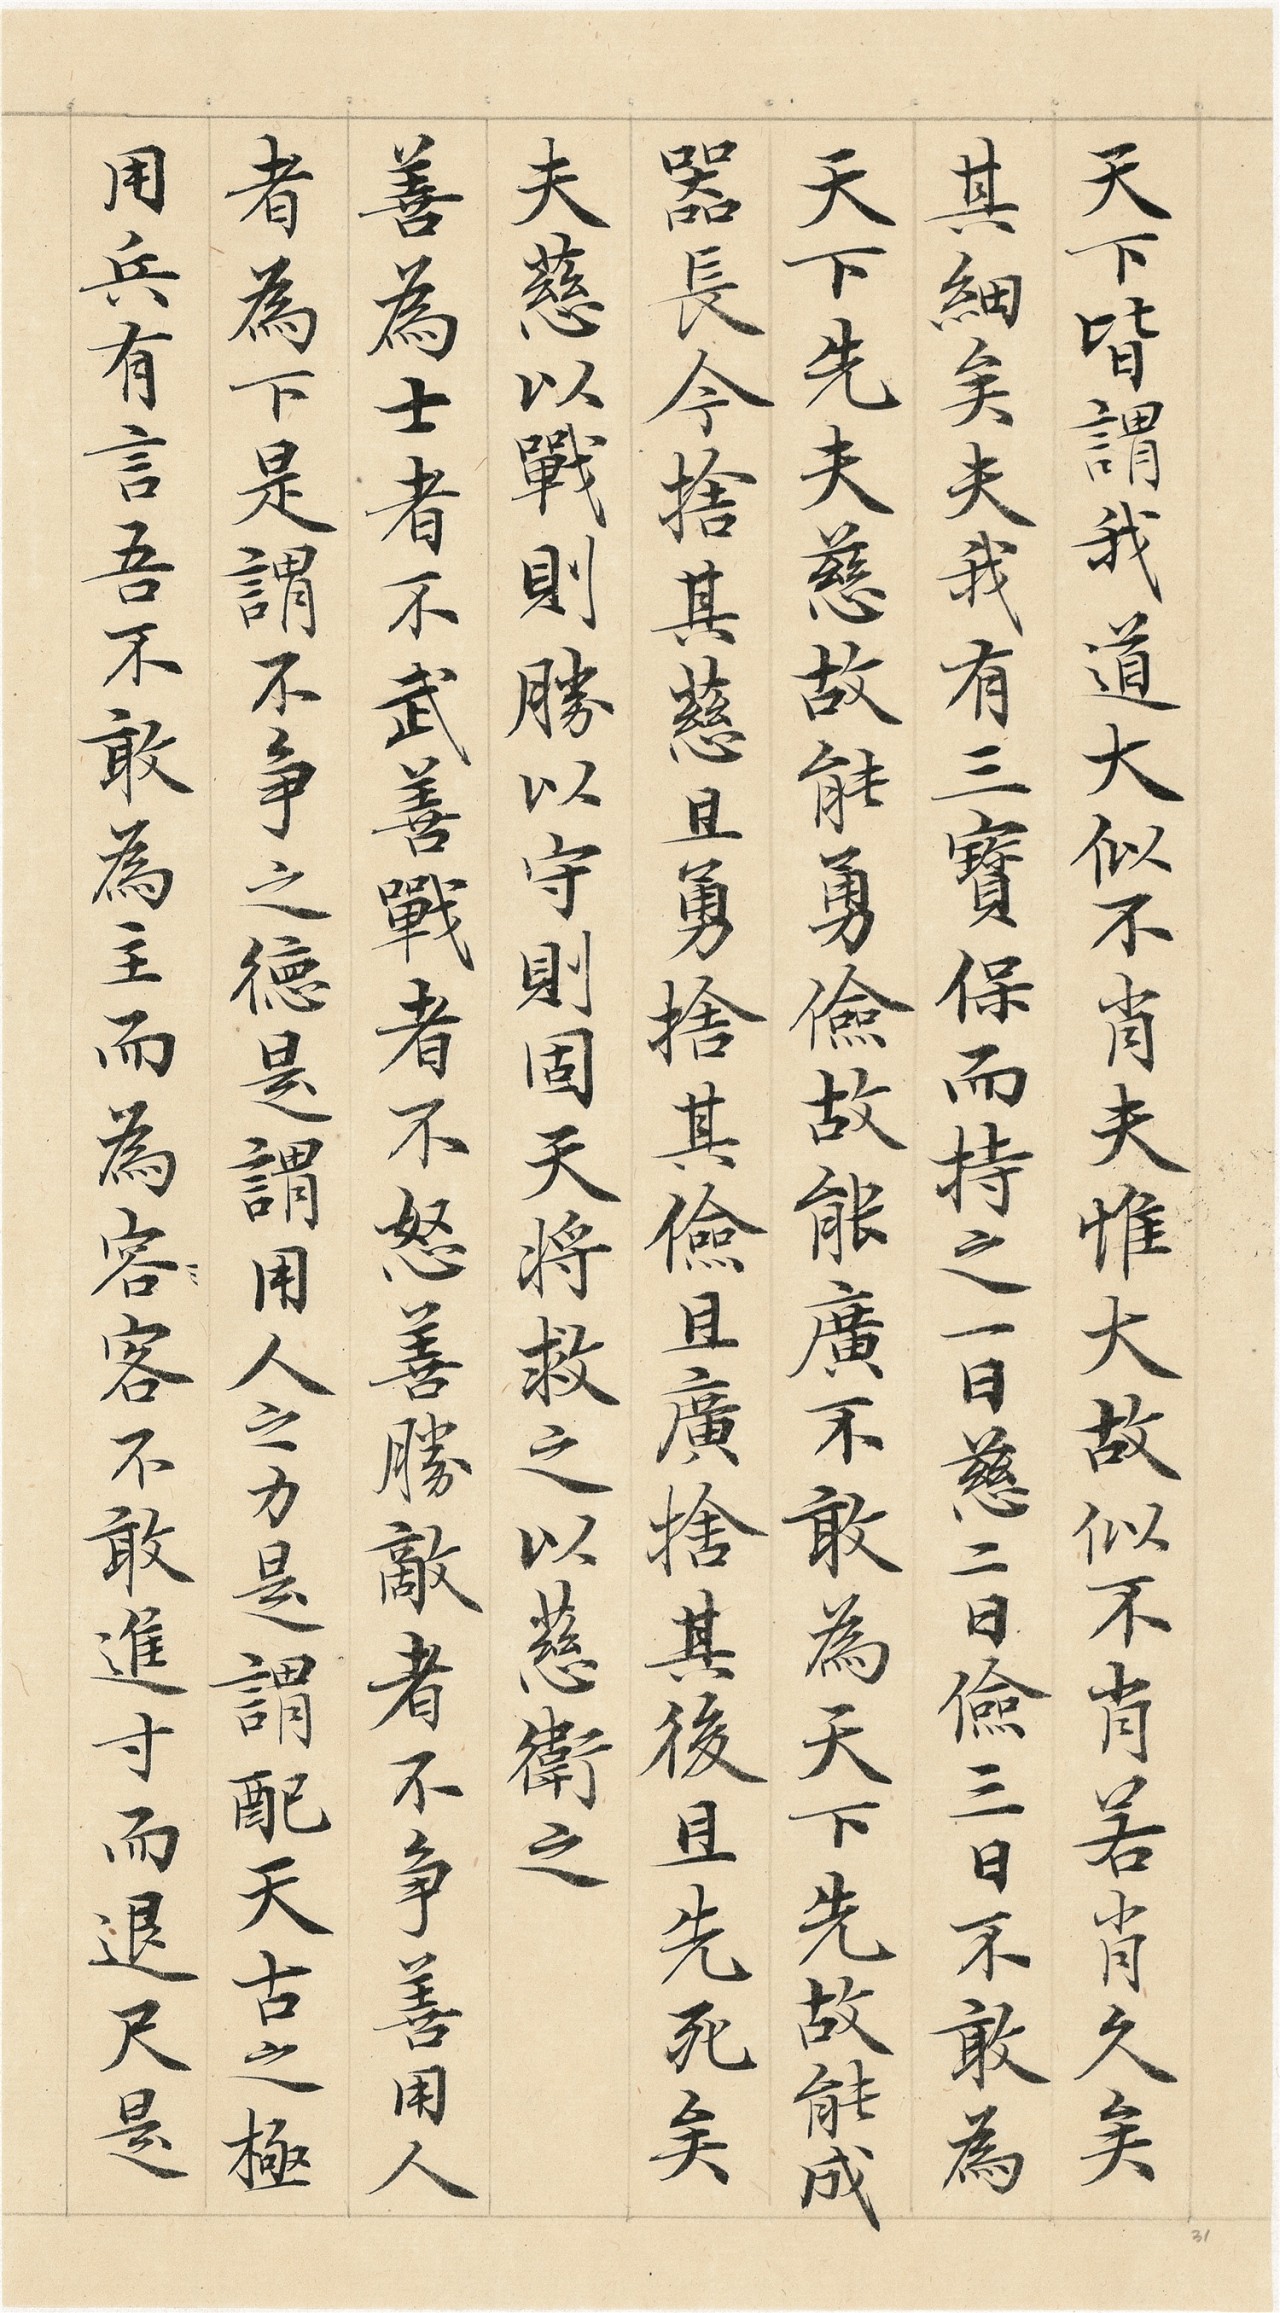 天下皆謂我道大似不肖夫惟大故似不肖若肖久矣
其細矣夫我有三寶保而持之一曰慈二曰儉三曰不敢為
天下先夫慈故能勇儉故能廣不敢為天下先故能成
器長今捨其慈且勇捨其儉且廣捨其後且先死矣
夫慈以戰則勝以守則固天將救之以慈衛之
善為士者不武善戰者不怒善勝敵者不爭善用人
者為下是謂不爭之德是謂用人之力是謂配天古之極
用兵有言吾不敢為主而為容客不敢進寸而退尺是
31